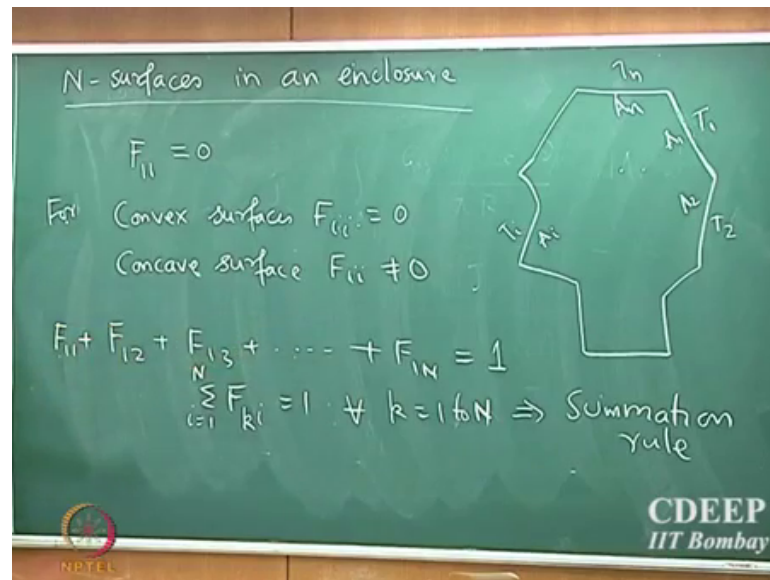 N-surfaces in an enclosure
F₁₁ = 0
For Convex surfaces Fᵢᵢ = 0
Concave surface Fᵢᵢ ≠ 0
F₁₁ + F₁₂ + F₁₃ + ..... + F₁N = 1
N
Σ Fₖᵢ = 1 ∀ k = 1 to N ⇒ Summation
i=1
rule
Tn
An
T₁
A₁
A₂
T₂
Tᵢ
Aᵢ
NPTEL
CDEEP
IIT Bombay